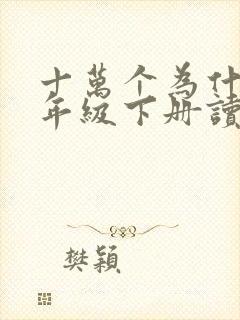 十萬个為什
年級下册讀
樊穎